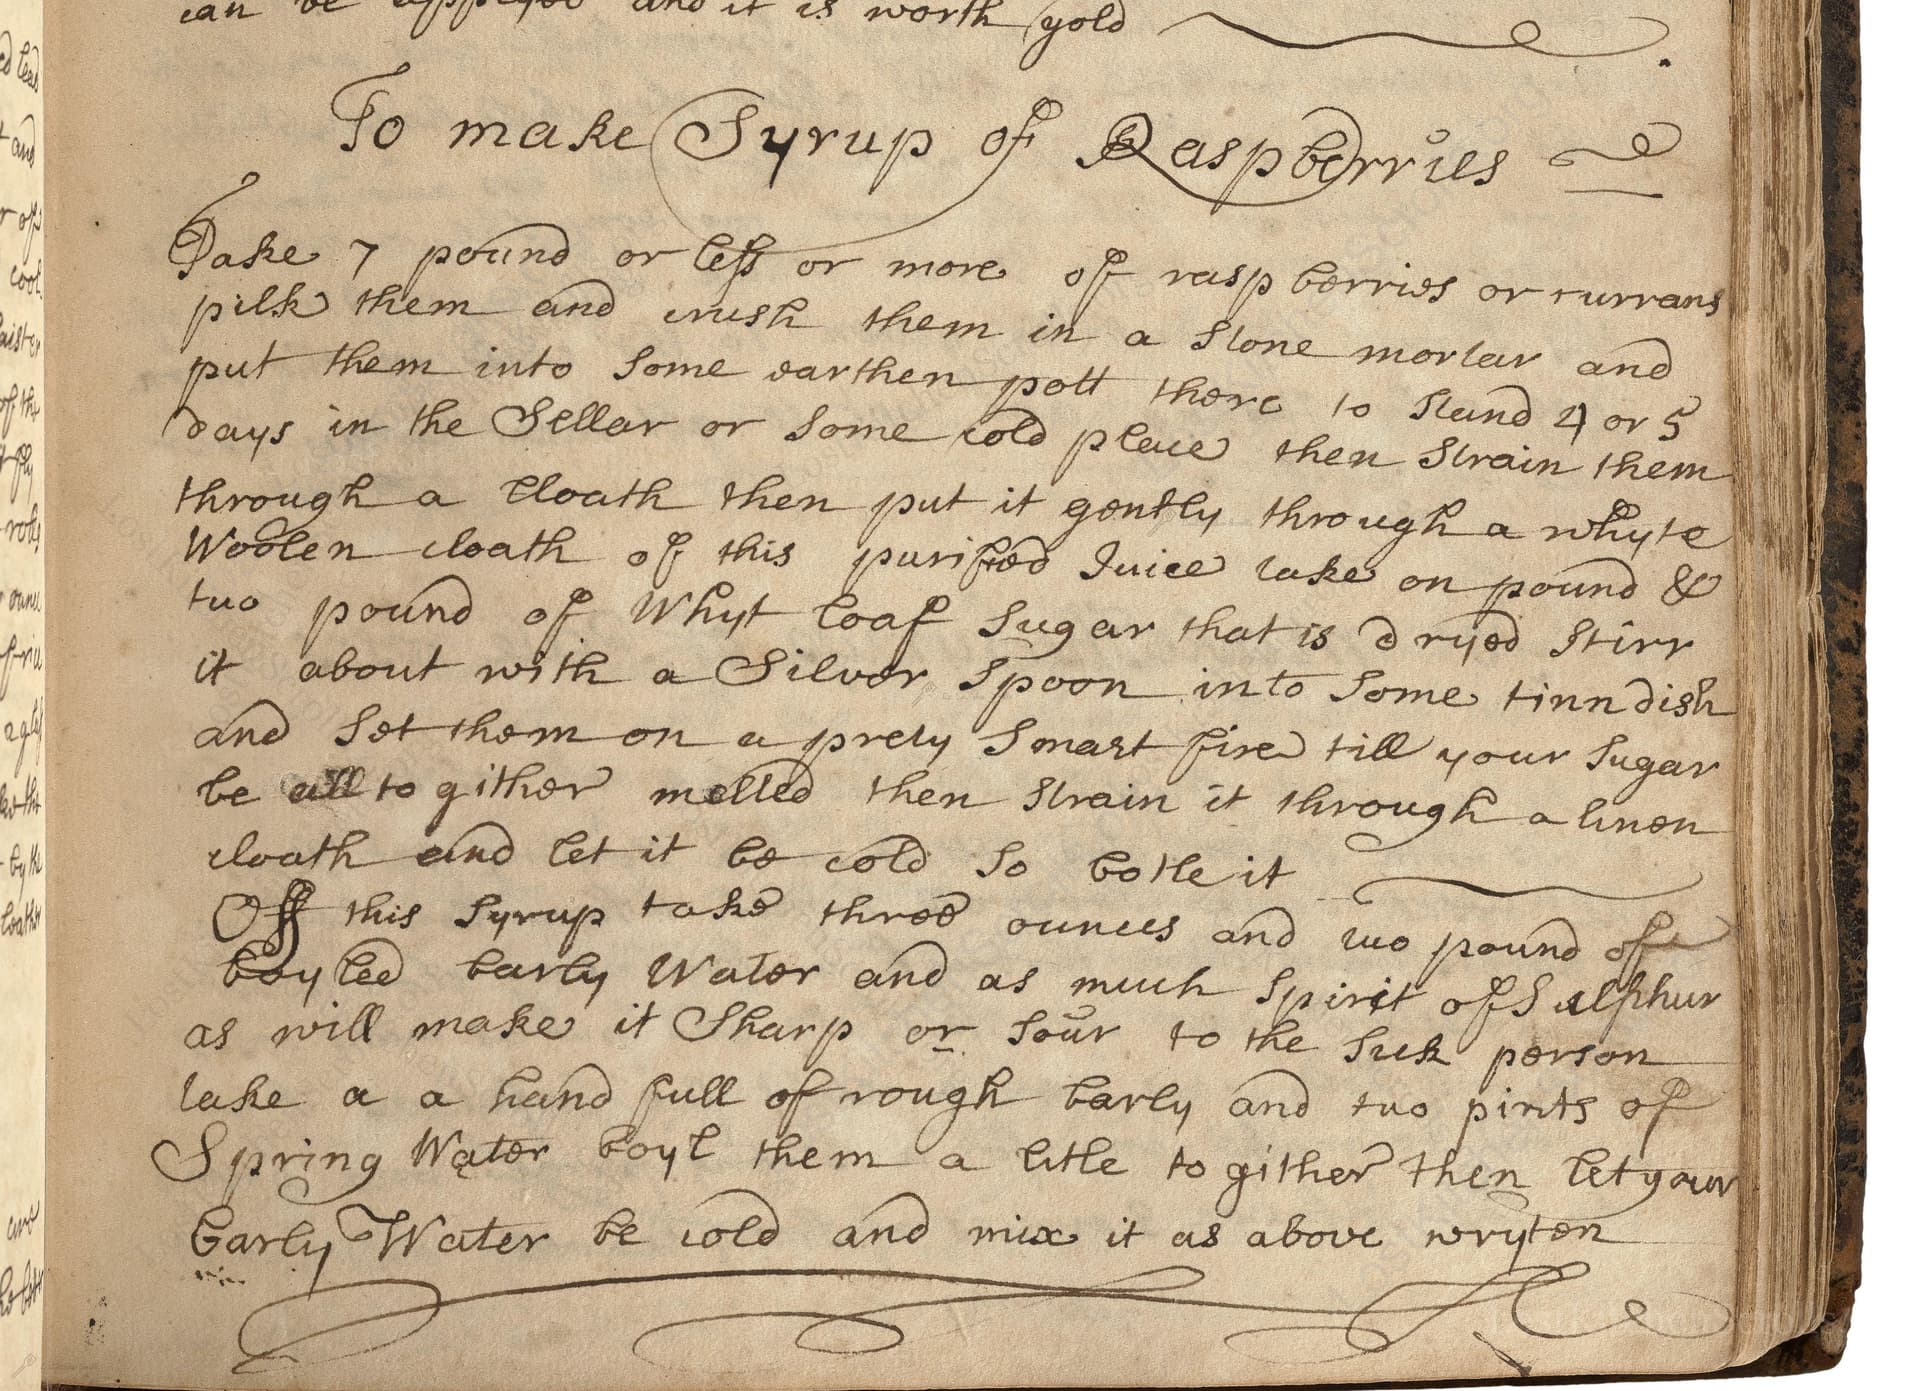 can be applyed and it is worth gold
To make Syrup of Raspberries
Take 7 pound or less or more of raspberries or currans
pilk them and crush them in a stone mortar and
put them into some earthen pott there to stand 4 or 5
days in the Sellar or some cold place then strain them
through a cloath then put it gently through a whyte
Woolen cloath of this purifred Juice take on pound &
tuo pound of Whyt loaf sugar that is dryed stirr
it about with a Silver spoon into some tinn dish
and set them on a prety smart fire till your sugar
be all to gither melted then strain it through a linen
cloath and let it be cold so botle it
Off this syrup take three ounces and tuo pound off
boyled barly Water and as much spirit of Sulphur
as will make it Sharp or sour to the sick person
take a a hand full of rough barly and tuo pints of
Spring Water boyl them a litle to gither then let your
barly Water be cold and mix it as above wryten